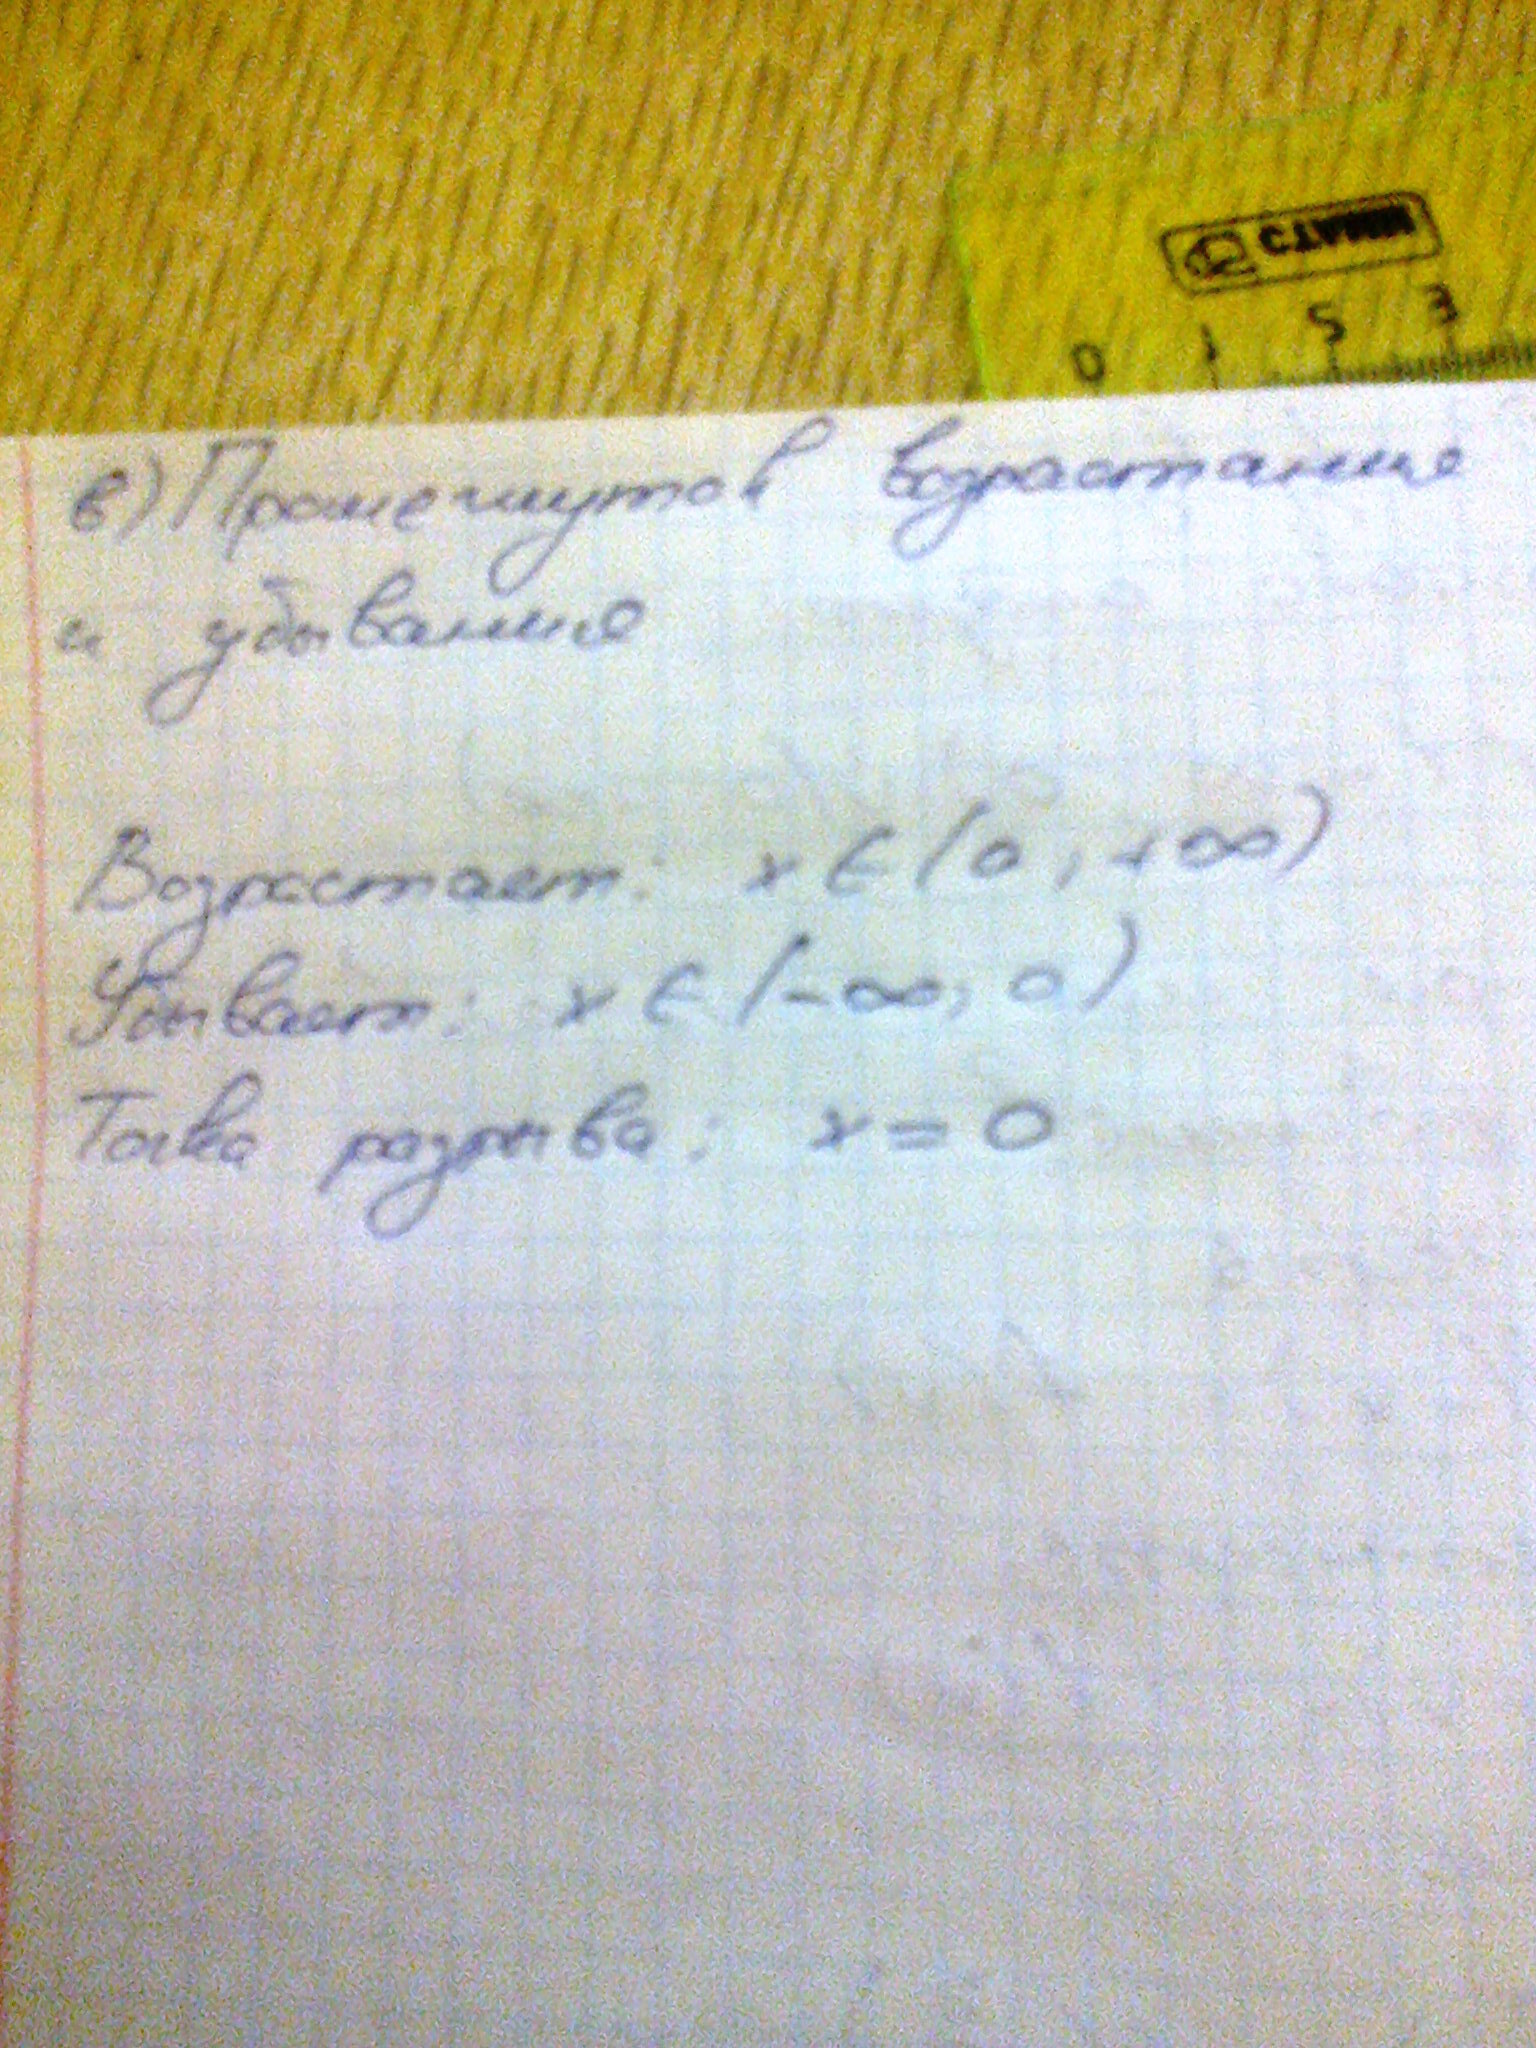 СТАММ
0 1 2 3
в) Промежуток возрастание
и убывание
Возрастает: x ∈ (0; +∞)
Убывает: x ∈ (-∞; 0)
Точка разрыва: x = 0